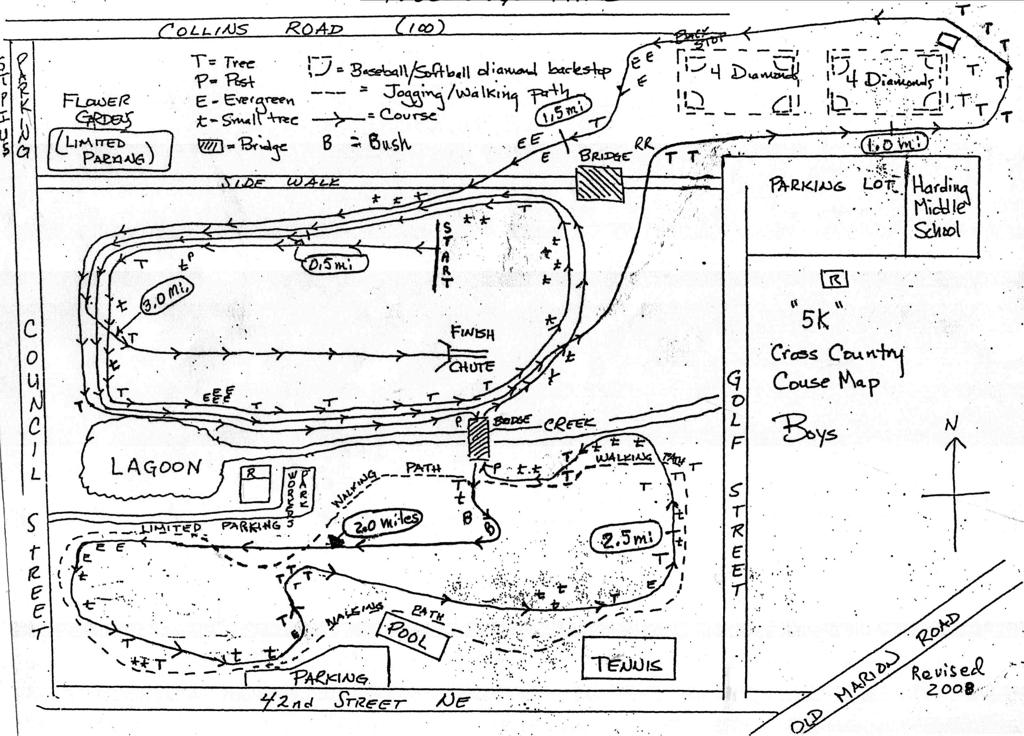 COLLINS ROAD (100)
PARKING
T = Tree
P = Post
E - Evergreen
t - Small tree
= Bridge
= Baseball/Softball diamond backstop
= Jogging/Walking path
= Course
B = Bush
FLOWER
(LIMITED
PARKING)
SIDE WALK
BRIDGE
RR
1.5 mi
BACK
STOP
4 Diamonds
4 Diamonds
1.0 mi
PARKING LOT
Harding
Middle
School
START
0.5 mi
3.0 mi
FINISH
CHUTE
COUNCIL STREET
GOLF STREET
R
"5K"
Cross Country
Couse Map
Boys
N
CREEK
LAGOON
R
WALKING PATH
WALKING PATH
LIMITED PARKING
2.0 miles
2.5 mi
WALKING PATH
POOL
TENNIS
PARKING
42nd STREET NE
OLD MARION ROAD
Revised
2008